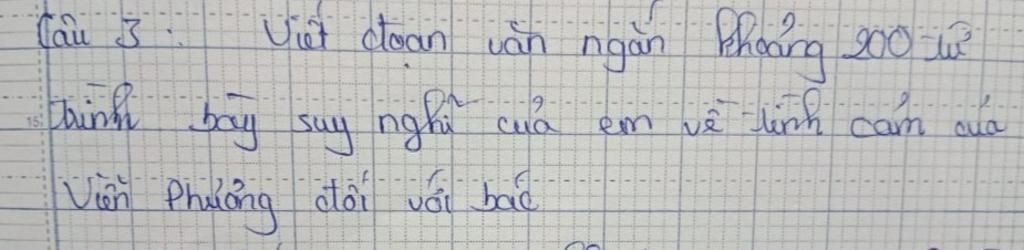 Câu 3: Viết đoạn văn ngắn khoảng 200 từ
trình bày suy nghĩ của em về tình cảm của
Viễn Phương đối với bác